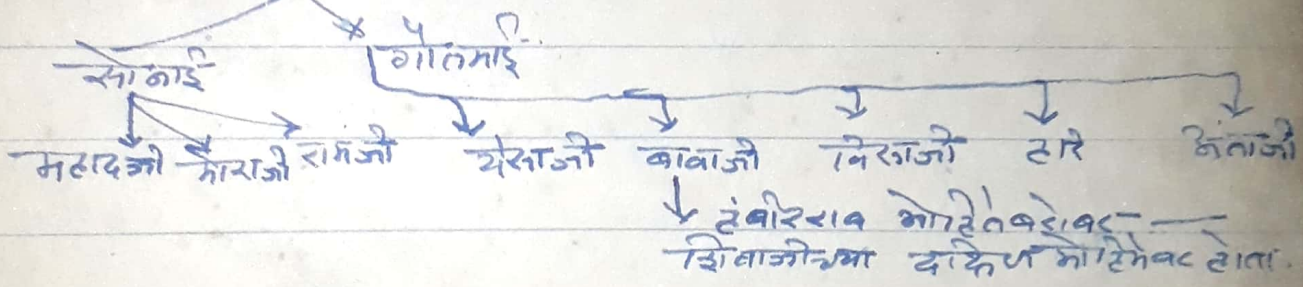 सोनाई गौतमाई
महादजी मोराजी रामजी येसाजी बाबाजी विसाजी हारि नेताजी
हंबीरराव मोहितेबरोबर
शिवाजीच्या दक्षिण मोहिमेवर होता.